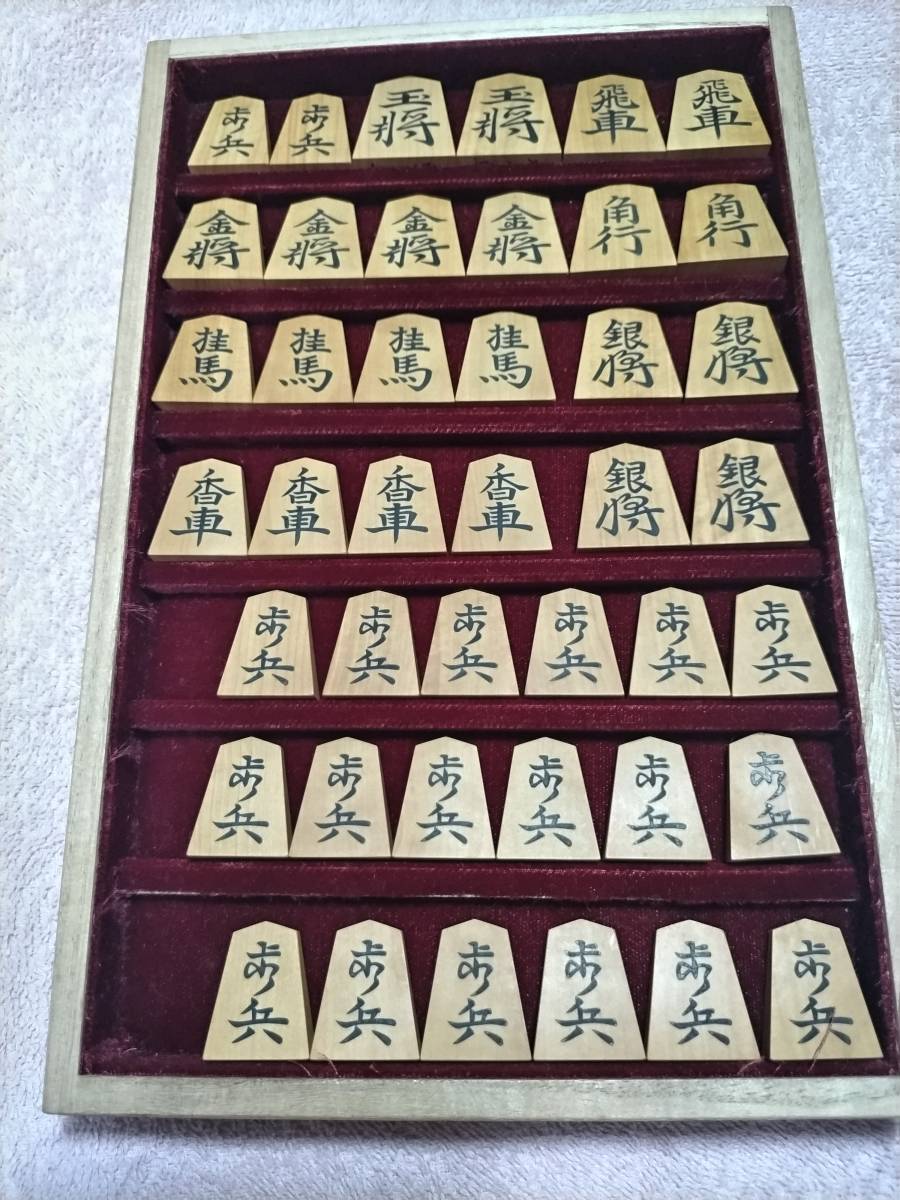 歩兵 歩兵 玉将 玉将 飛車 飛車
金将 金将 金将 金将 角行 角行
桂馬 桂馬 桂馬 桂馬 銀将 銀将
香車 香車 香車 香車 銀将 銀将
歩兵 歩兵 歩兵 歩兵 歩兵 歩兵
歩兵 歩兵 歩兵 歩兵 歩兵 歩兵
歩兵 歩兵 歩兵 歩兵 歩兵 歩兵